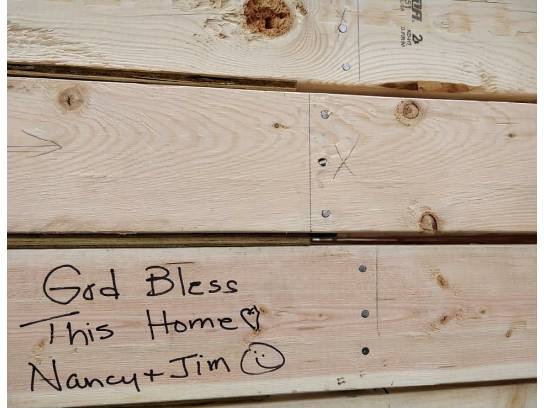 God Bless
This Home
Nancy + Jim